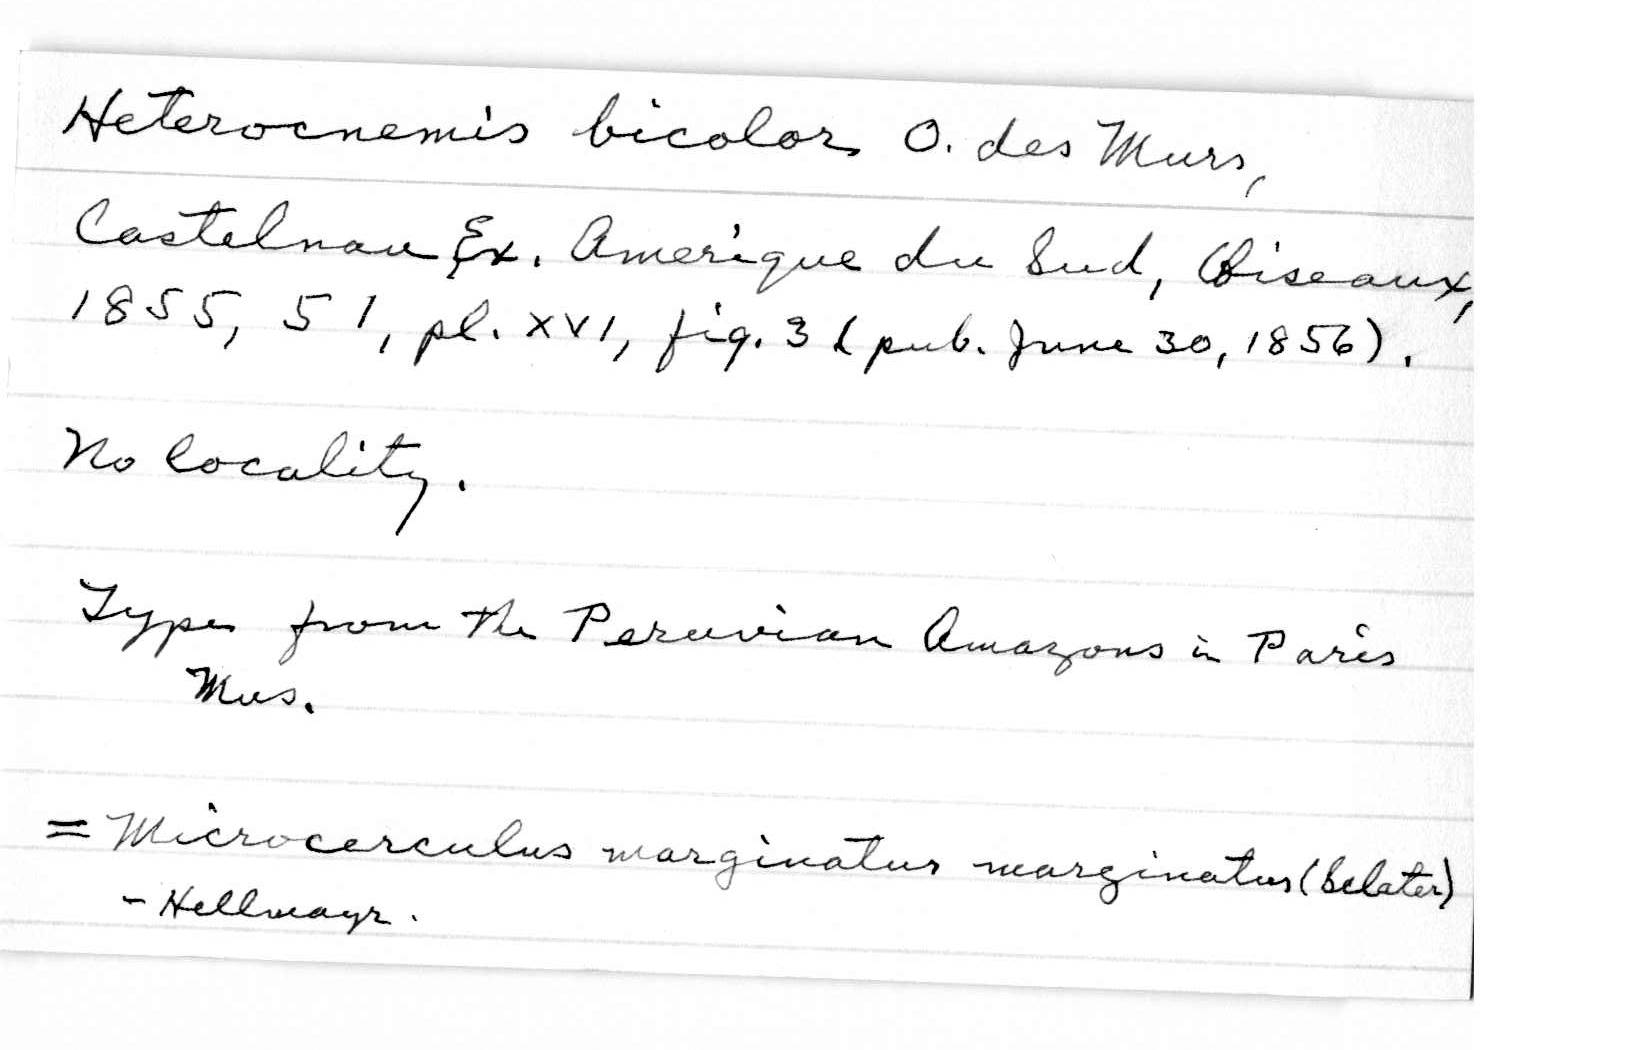 Heterocnemis bicolor O. des Murs,
Castelnau Ex. Amerique du Sud, Oiseaux,
1855, 51, pl. XVI, fig. 3 (pub. June 30, 1856).
No locality.
Type from the Peruvian Amazons in Paris
Mus.
= Microcerculus marginatus marginatus (Sclater)
- Hellmayr.